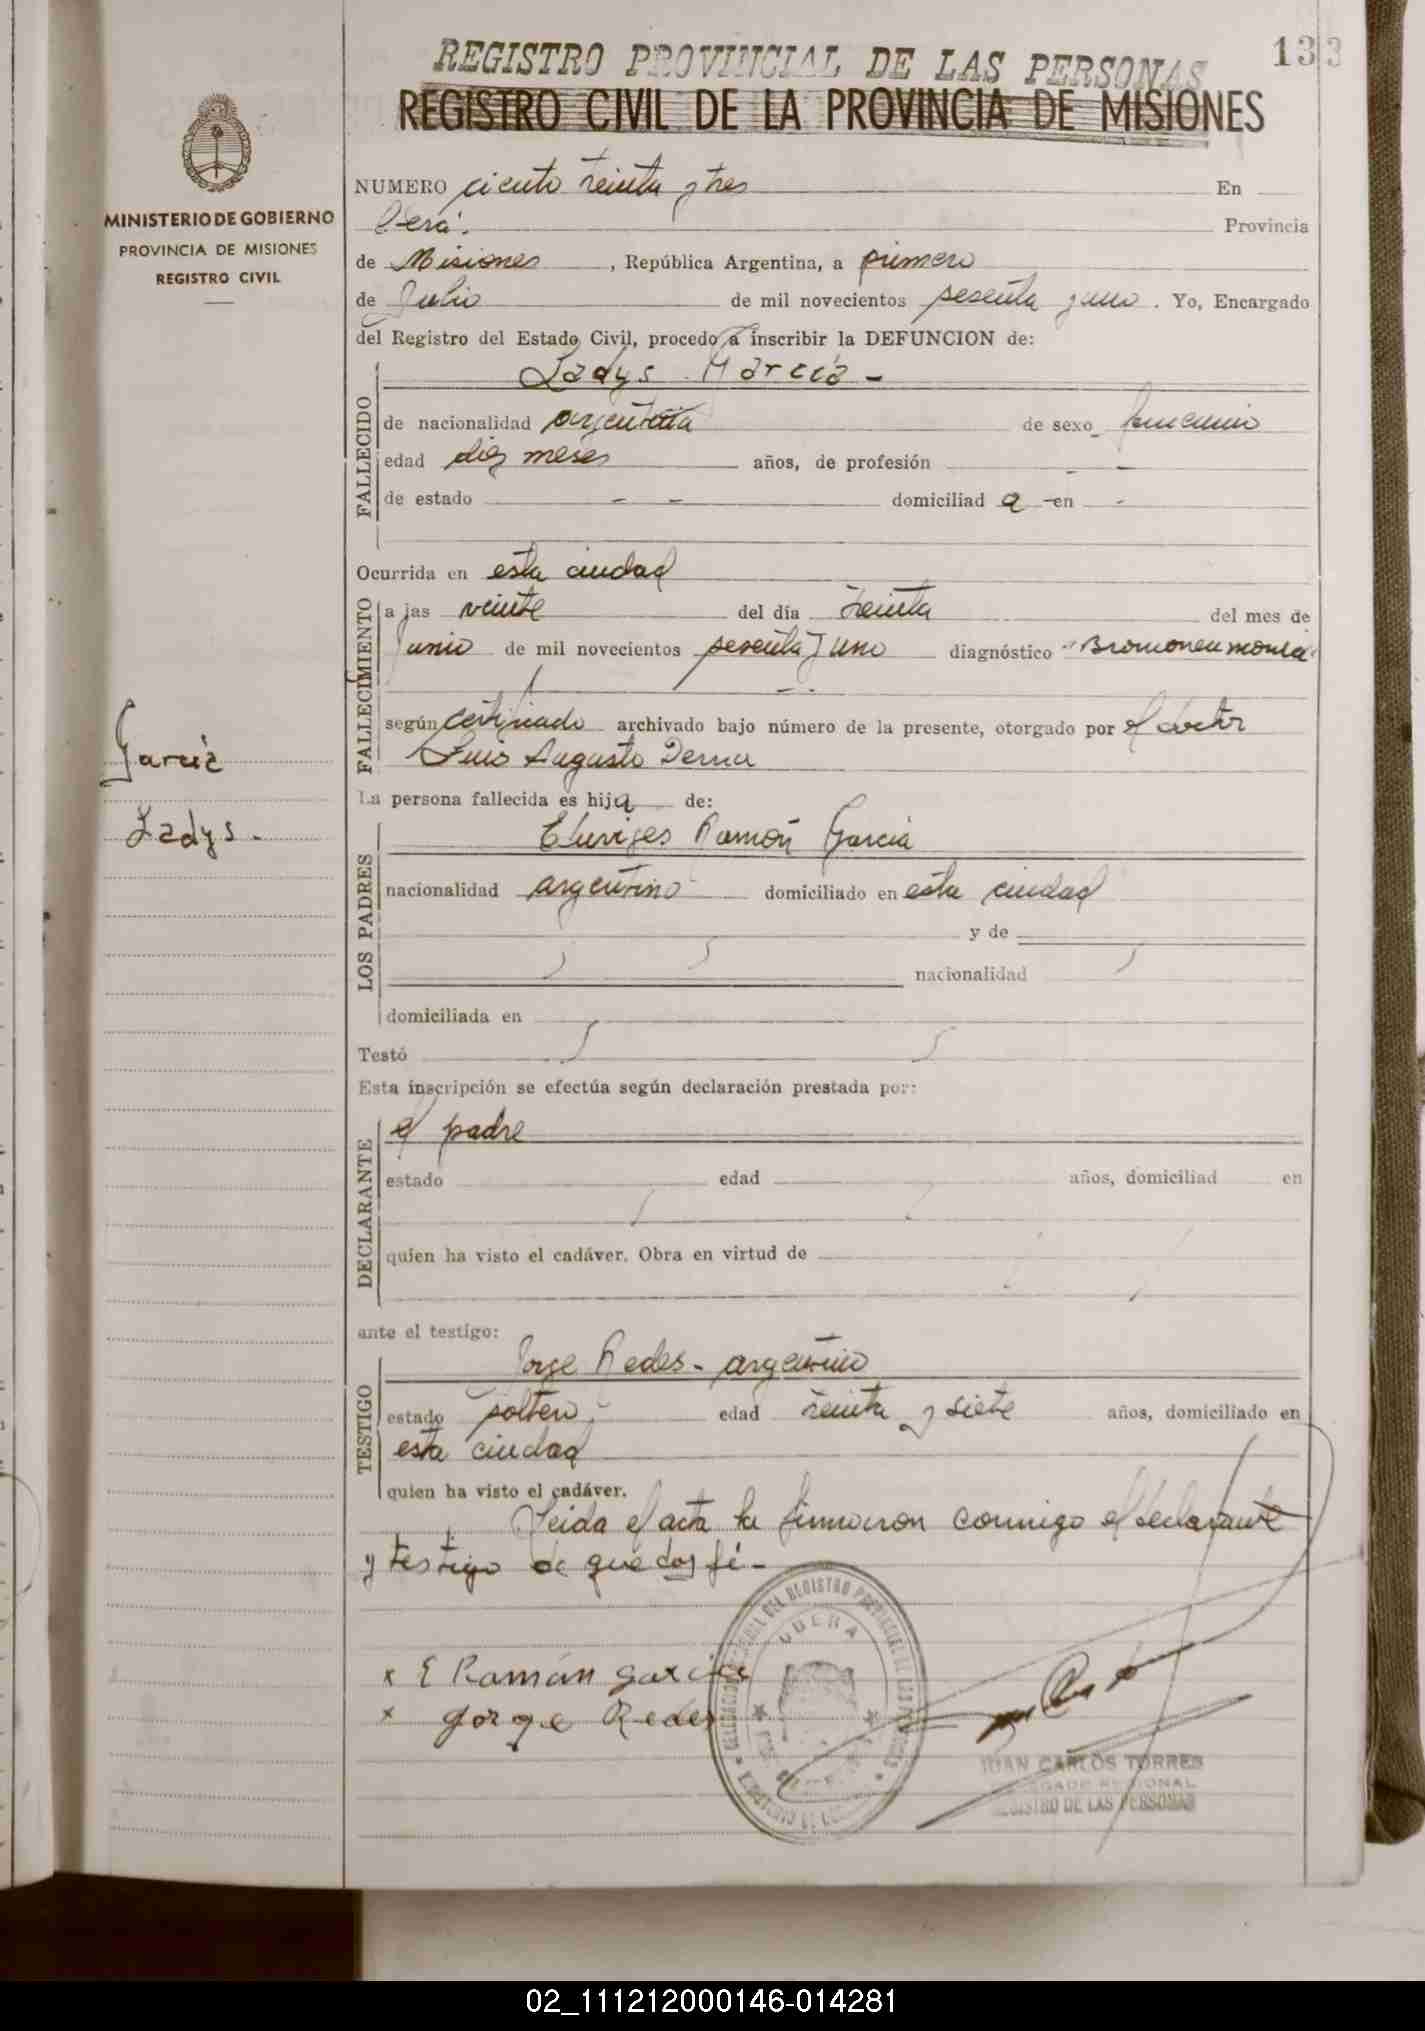 REGISTRO PROVINCIAL DE LAS PERSONAS
133
REGISTRO CIVIL DE LA PROVINCIA DE MISIONES
MINISTERIO DE GOBIERNO
PROVINCIA DE MISIONES
REGISTRO CIVIL
NUMERO ciento treinta y tres En
Oberá. Provincia
de Misiones, República Argentina, a primero
de Julio de mil novecientos sesenta y uno. Yo, Encargado
del Registro del Estado Civil, procedo a inscribir la DEFUNCION de:
FALLECIDO
Ladys García -
de nacionalidad argentina de sexo femenino
edad diez meses años, de profesión - -
de estado - - domiciliad a - en -
Ocurrida en esta ciudad
FALLECIMIENTO
a las veinte del día treinta del mes de
Junio de mil novecientos sesenta y uno diagnóstico "Bronconeumonia"
según certificado archivado bajo número de la presente, otorgado por el doctor
Luis Augusto
La persona fallecida es hija de:
García
Ladys.
LOS PADRES
Ramón García
nacionalidad argentino domiciliado en esta ciudad
y de
nacionalidad
domiciliada en
Testó
Esta inscripción se efectúa según declaración prestada por:
DECLARANTE
el padre
estado edad años, domiciliad en
quien ha visto el cadáver. Obra en virtud de
ante el testigo:
TESTIGO
Jorge Redes - argentino
estado soltero, edad treinta y siete años, domiciliado en
esta ciudad
quien ha visto el cadáver.
Leida el acta la firmaron conmigo el declarante
y testigo de que doy fé -
x E Ramón García
x Jorge Redes
OBERA
JUAN CARLOS TORRES
DELEGADO REGIONAL
REGISTRO DE LAS PERSONAS
02_111212000146-014281